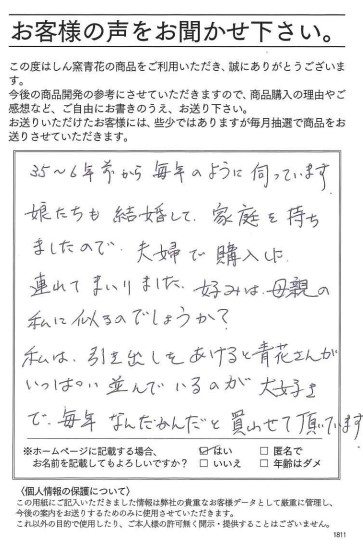 お客様の声をお聞かせ下さい。
この度はしん窯青花の商品をご利用いただき、誠にありがとうございま
す。
今後の商品開発の参考にさせていただきますので、商品購入の理由やご
感想など、ご自由にお書きのうえ、お送り下さい。
お送りいただけたお客様には、些少ではありますが毎月抽選で商品をお
送りさせていただきます。
35〜6年前から毎年のように伺っています
娘たちも結婚して、家庭を持ち
ましたので、夫婦で購入に
連れてまいりました、好みは、母親の
私に似るのでしょうか?
私は、引き出しをあけると青花さんが
いっぱい並んでいるのが大好き
で、毎年なんだかんだと買わせて頂いています
※ホームページに記載する場合、 ☑はい □匿名で
お名前を記載してもよろしいですか? □いいえ □年齢はダメ
〈個人情報の保護について〉
この用紙にご記入いただきました情報は弊社の貴重なお客様データとして厳重に管理し、
今後の案内をお送りするためのみに使用させていただきます。
これ以外の目的で使用したり、ご本人様の許可無く開示・提供することはございません。
1811